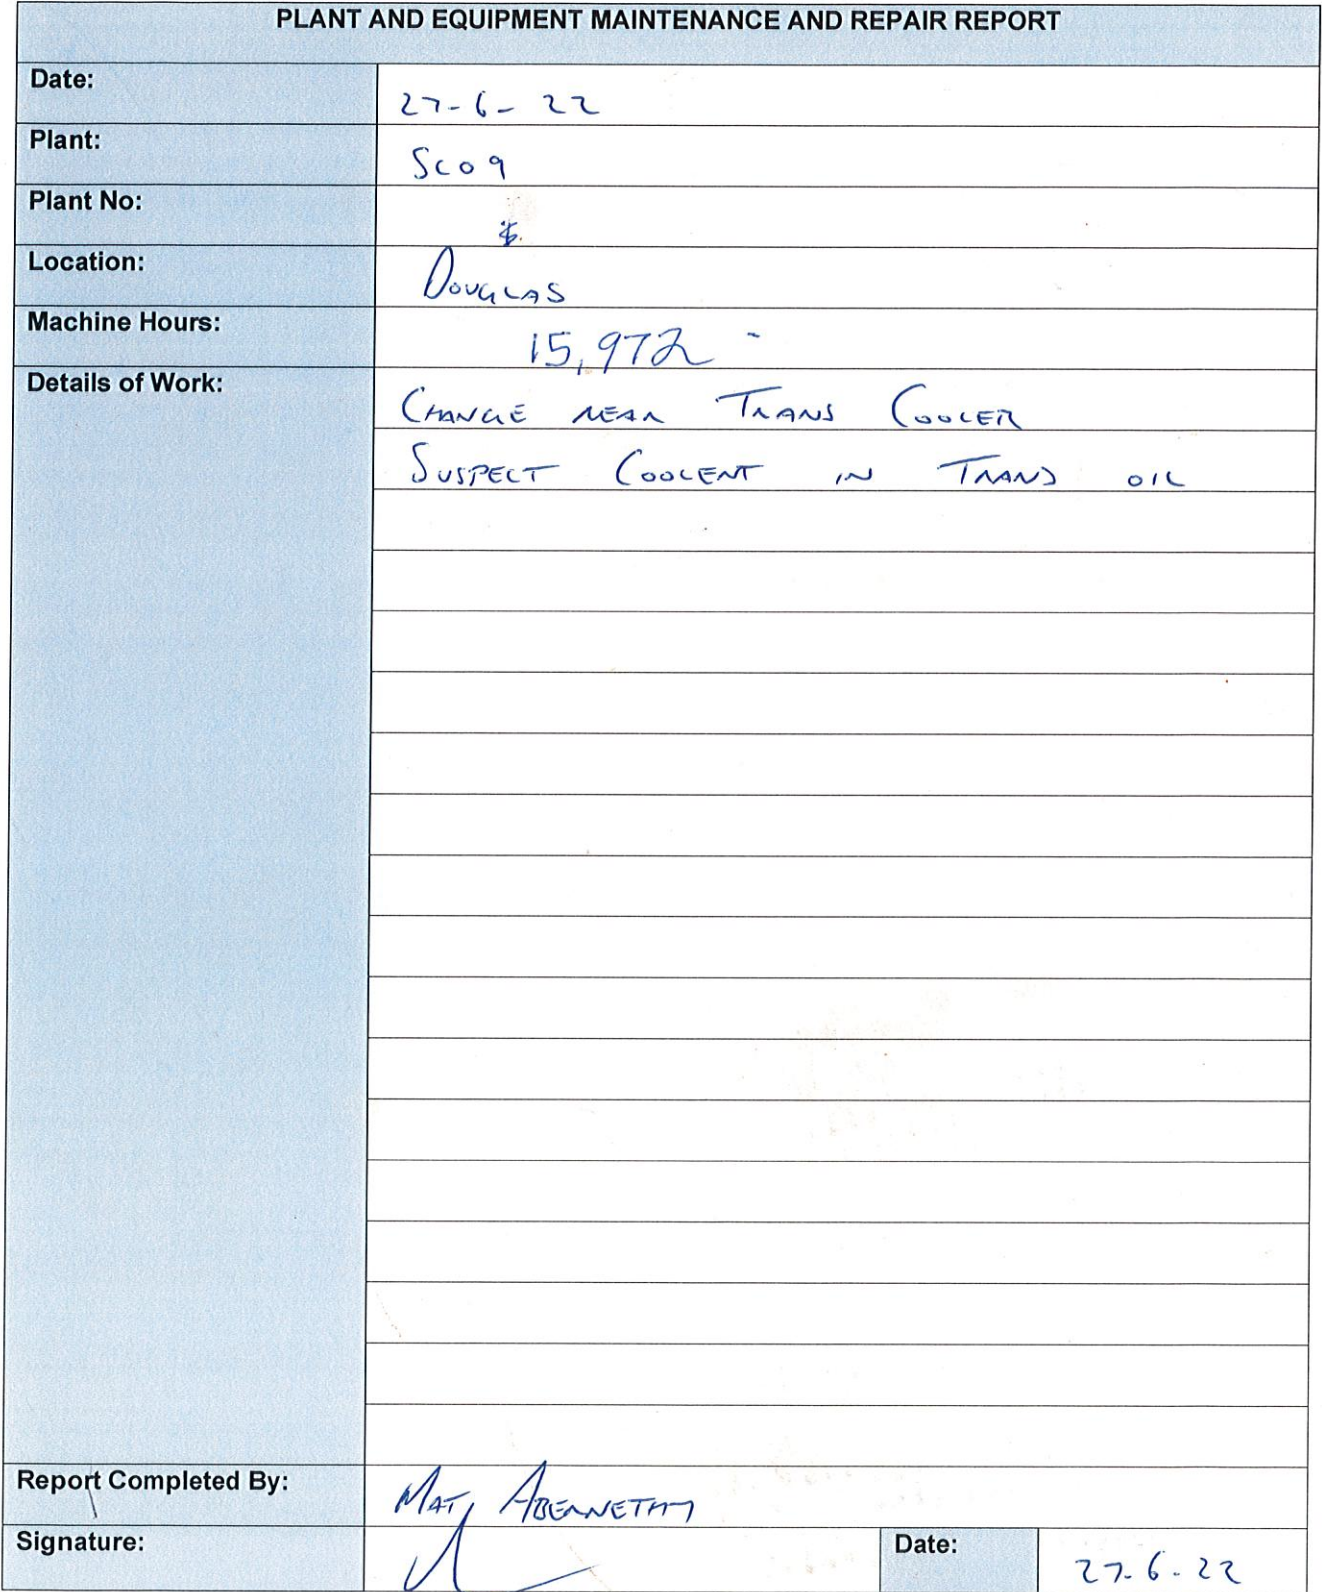 PLANT AND EQUIPMENT MAINTENANCE AND REPAIR REPORT
Date: 27-6-22
Plant: SC09
Plant No:
Location: DOUGLAS
Machine Hours: 15,972
Details of Work: CHANGE REAR TRANS COOLER
SUSPECT COOLENT IN TRANS OIL
Report Completed By: MAT ABERNETHY
Signature: Date: 27.6.22